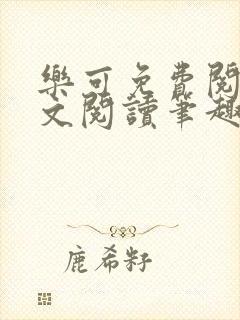 樂可免費閱
文閱讀筆趣
鹿希籽